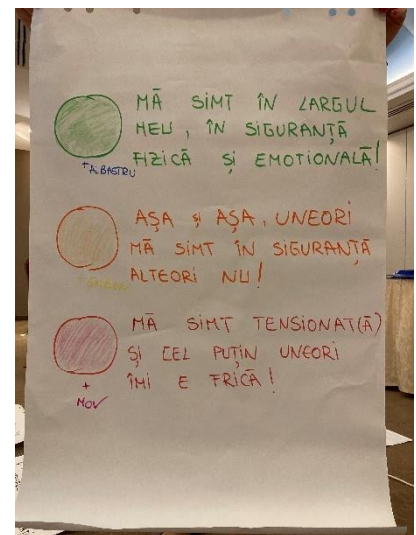 MĂ SIMT ÎN LARGUL
MEU, ÎN SIGURANȚĂ
FIZICĂ ȘI EMOTIONALĂ!
+ALBASTRU
AȘA ȘI AȘA, UNEORI
MĂ SIMT ÎN SIGURANȚĂ
ALTEORI NU!
+GALBEN
MĂ SIMT TENSIONAT(Ă)
ȘI CEL PUȚIN UNEORI
ÎMI E FRICĂ!
+
MOV